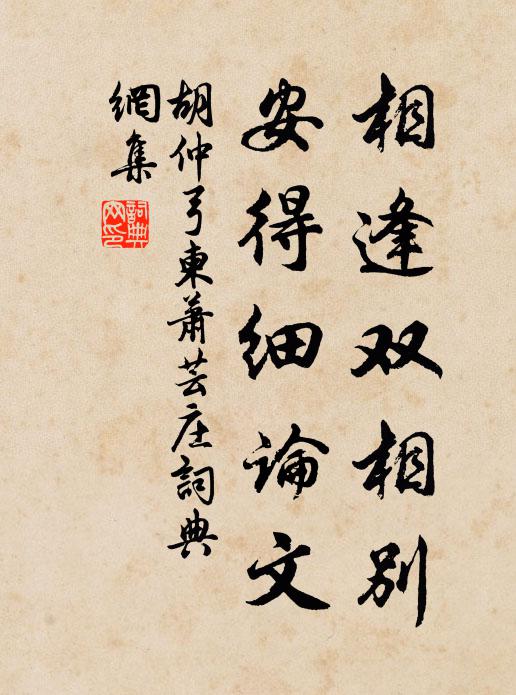 相逢双相别
安得细論文
胡仲弓東萧芸庄詞典
網集
詞典
网印